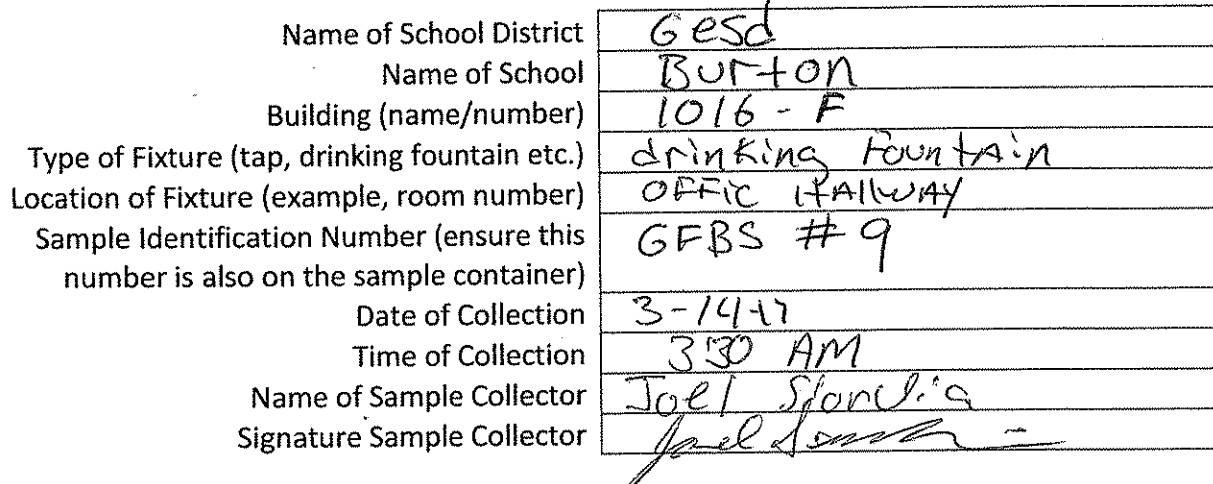 Name of School District Gesd
Name of School Burton
Building (name/number) 1016 - F
Type of Fixture (tap, drinking fountain etc.) drinking Fountain
Location of Fixture (example, room number) OFFic HAllWAY
Sample Identification Number (ensure this GFBS # 9
number is also on the sample container)
Date of Collection 3-14-17
Time of Collection 3:30 AM
Name of Sample Collector Joel
Signature Sample Collector